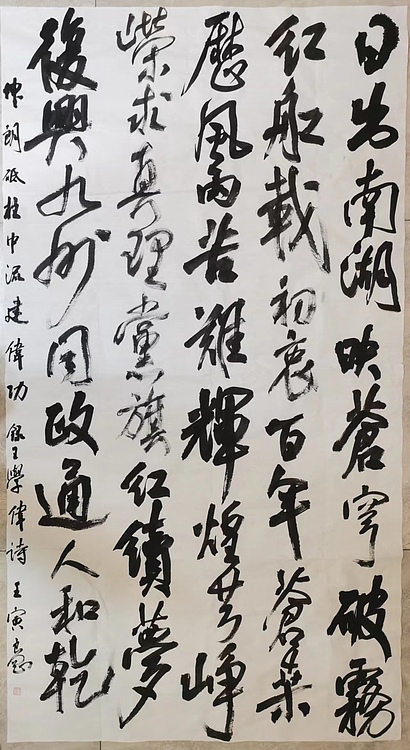 日出南湖映蒼穹破霧
红船載初衷百年蒼桑
歷風雨苦難輝煌共崢
嶸求真理黨旗红續夢
復興九州同政通人和乾
坤朗砥柱中流建偉功 錄王學偉詩 壬寅